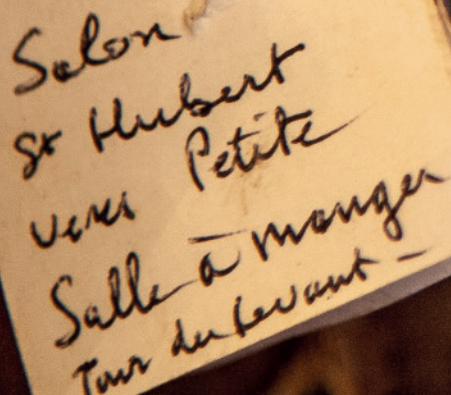 Salon
St Hubert
vers Petite
Salle à manger
Tour du Levant -